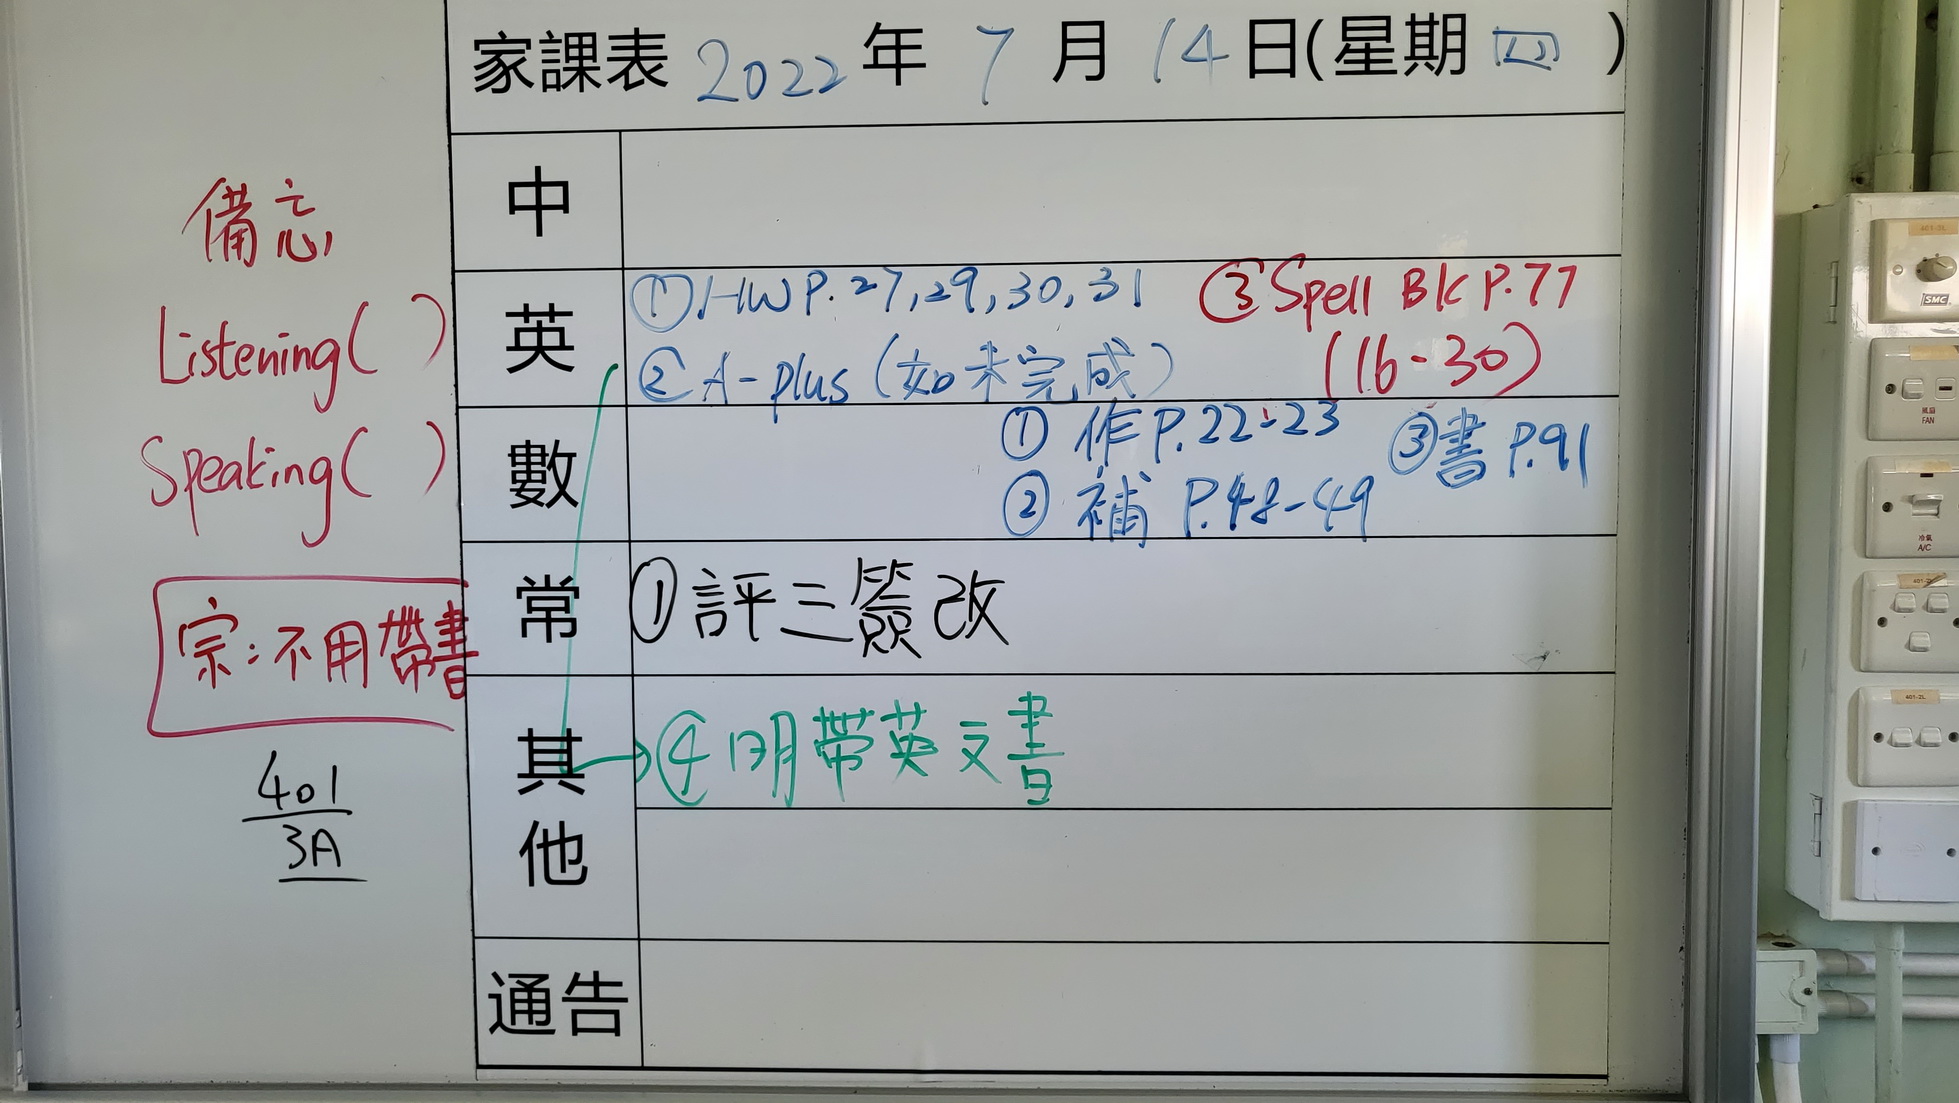 家課表 2022 年 7 月 14 日(星期 四 )
中
英
①HW P. 27, 29, 30, 31
② A-plus (如未完成)
③ Spell BK P.77
(16-30)
數
① 作 P.22-23
② 補 P.48-49
③書 P.91
常
①評三簽改
其他
④ 明帶英文書
通告
備忘
Listening( )
Speaking( )
宗:不用帶書
401
3A
SMC
風扇
FAN
冷氣
A/C